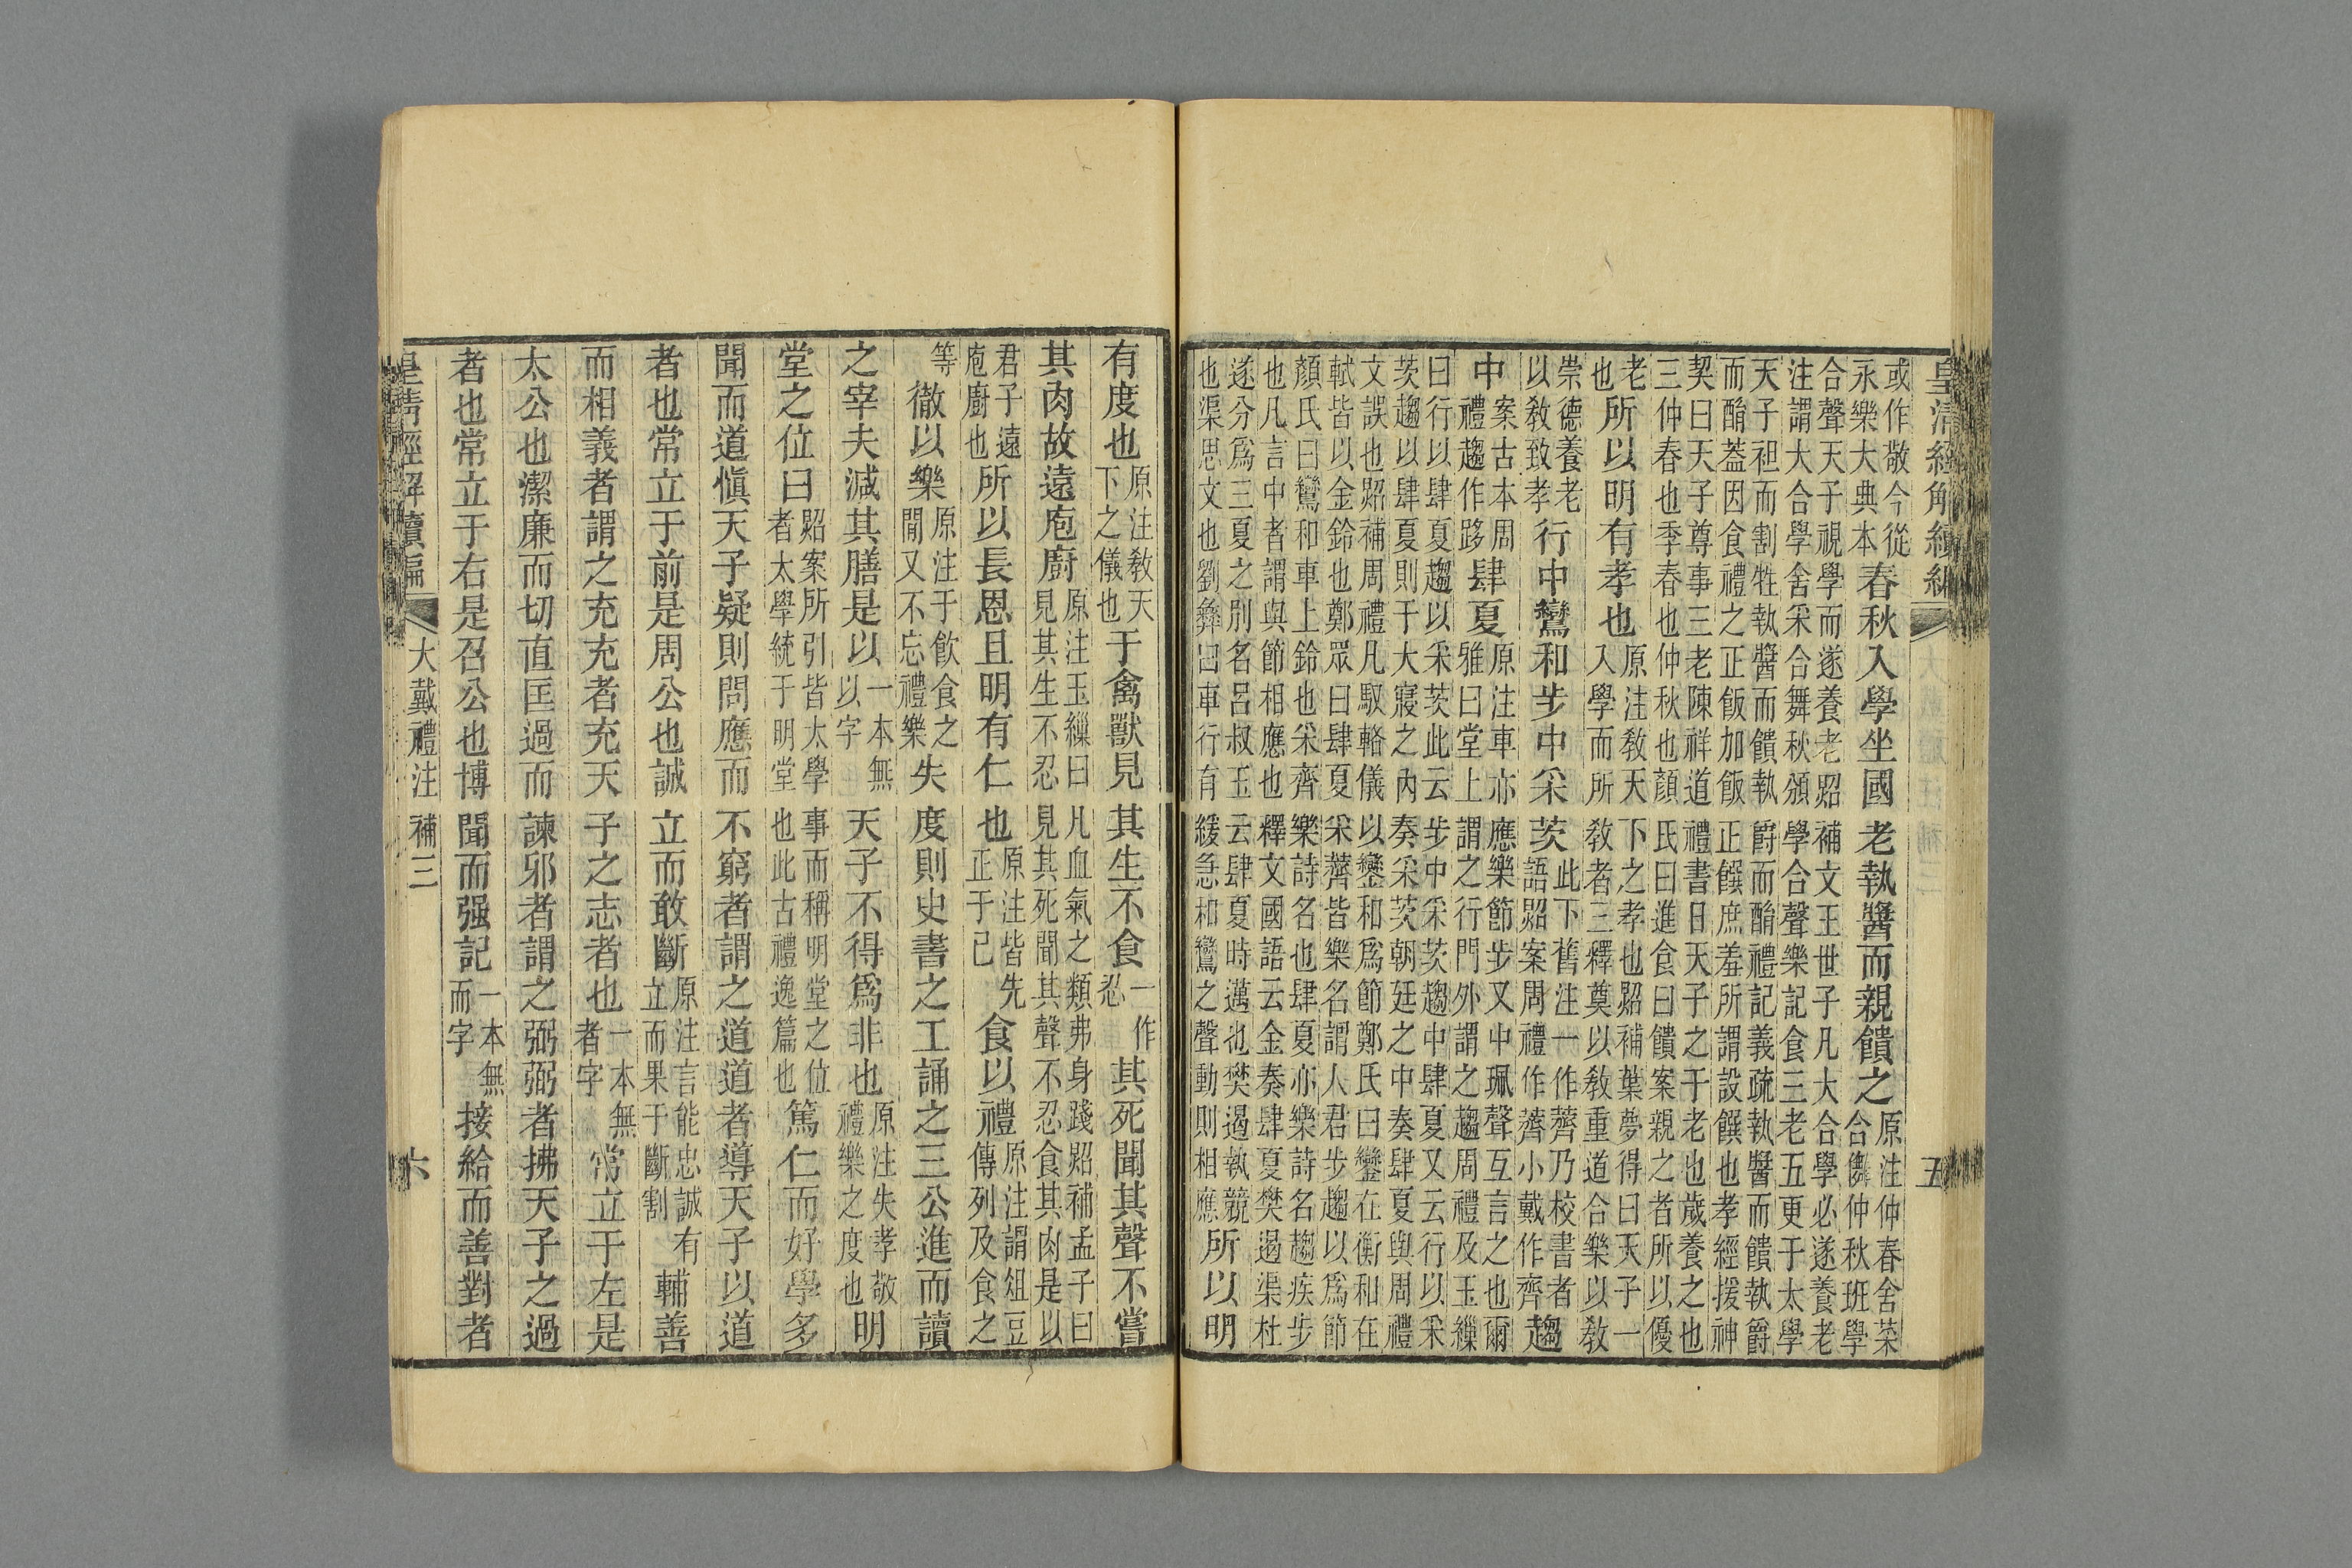 皇清經解續編 五
或作敬今從
永樂大典本
春秋入學坐國老執醬而親饋之
原注仲春舍菜
合儛仲秋班學
合聲天子視學而遂養老昭補文王世子凡大合學必遂養老
注謂大合學舍采合舞秋頒學合聲樂記食三老五更于太學
天子袒而割牲執醬而饋執爵而酳禮記義疏執醬而饋執爵
而酳蓋因食禮之正飯加飯正饌庶羞所謂設饌也孝經援神
契曰天子尊事三老陳祥道禮書曰天子之于老也歲養之也
三仲春也季春也仲秋也顏氏曰進食曰饋案親之者所以優
老
也
所以明有孝也
原注敎天下之孝也昭補葉夢得曰天子一
入學而所敎者三釋奠以敎重道合樂以敎
崇德養老
以敎致孝
行中鸞和步中采茨
此下舊注一作薺乃校書者
語昭案周禮作薺小戴作齊
趨
中
案古本周
禮趨作跢
肆夏
原注車亦應樂節步又中珮聲互言之也爾
雅曰堂上謂之行門外謂之趨周禮及玉繅
曰行以肆夏趨以采茨此云步中采茨趨中肆夏又云行以采
茨趨以肆夏則于大寢之內奏采茨朝廷之中奏肆夏與周禮
文誤也昭補周禮凡馭輅儀以鑾和爲節鄭氏曰鑾在衡和在
軾皆以金鈴也鄭眾曰肆夏采薺皆樂名謂人君步趨以爲節
顏氏曰鸞和車上鈴也采齊樂詩名也肆夏亦樂詩名趨疾步
也凡言中者謂與節相應也釋文國語云金奏肆夏樊遏渠杜
遂分爲三夏之別名呂叔玉云肆夏時邁也樊遏執競
也渠思文也劉彝曰車行有緩急和鸞之聲動則相應
所以明
有度也
原注敎天
下之儀也
于禽獸見其生不食
一作
忍
其死聞其聲不嘗
其肉故遠庖廚
原注玉繅曰凡血氣之類弗身踐昭補孟子曰
見其生不忍見其死聞其聲不忍食其肉是以
君子遠
庖廚也
所以長恩且明有仁也
原注皆先
正于已
食以禮
原注謂俎豆
傳列及食之
等
徹以樂
原注于飲食之
閒又不忘禮樂
失度則史書之工誦之三公進而讀
之宰夫減其膳是以
一本無
以字
天子不得爲非也
原注失孝敬
禮樂之度也
明
堂之位曰
昭案所引皆太學事而稱明堂之位
者太學統于明堂也此古禮逸篇也
篤仁而好學多
聞而道愼天子疑則問應而不窮者謂之道道者導天子以道
者也常立于前是周公也誠立而敢斷
原注言能忠誠有
立而果于斷割
輔善
而相義者謂之充充者充天子之志者也
一本無
者字
常立于左是
太公也潔廉而切直匡過而諫邪者謂之弼弼者拂天子之過
者也常立于右是召公也博聞而强記
一本無
而字
接給而善對者
皇清經解續編 大戴禮注補三 六